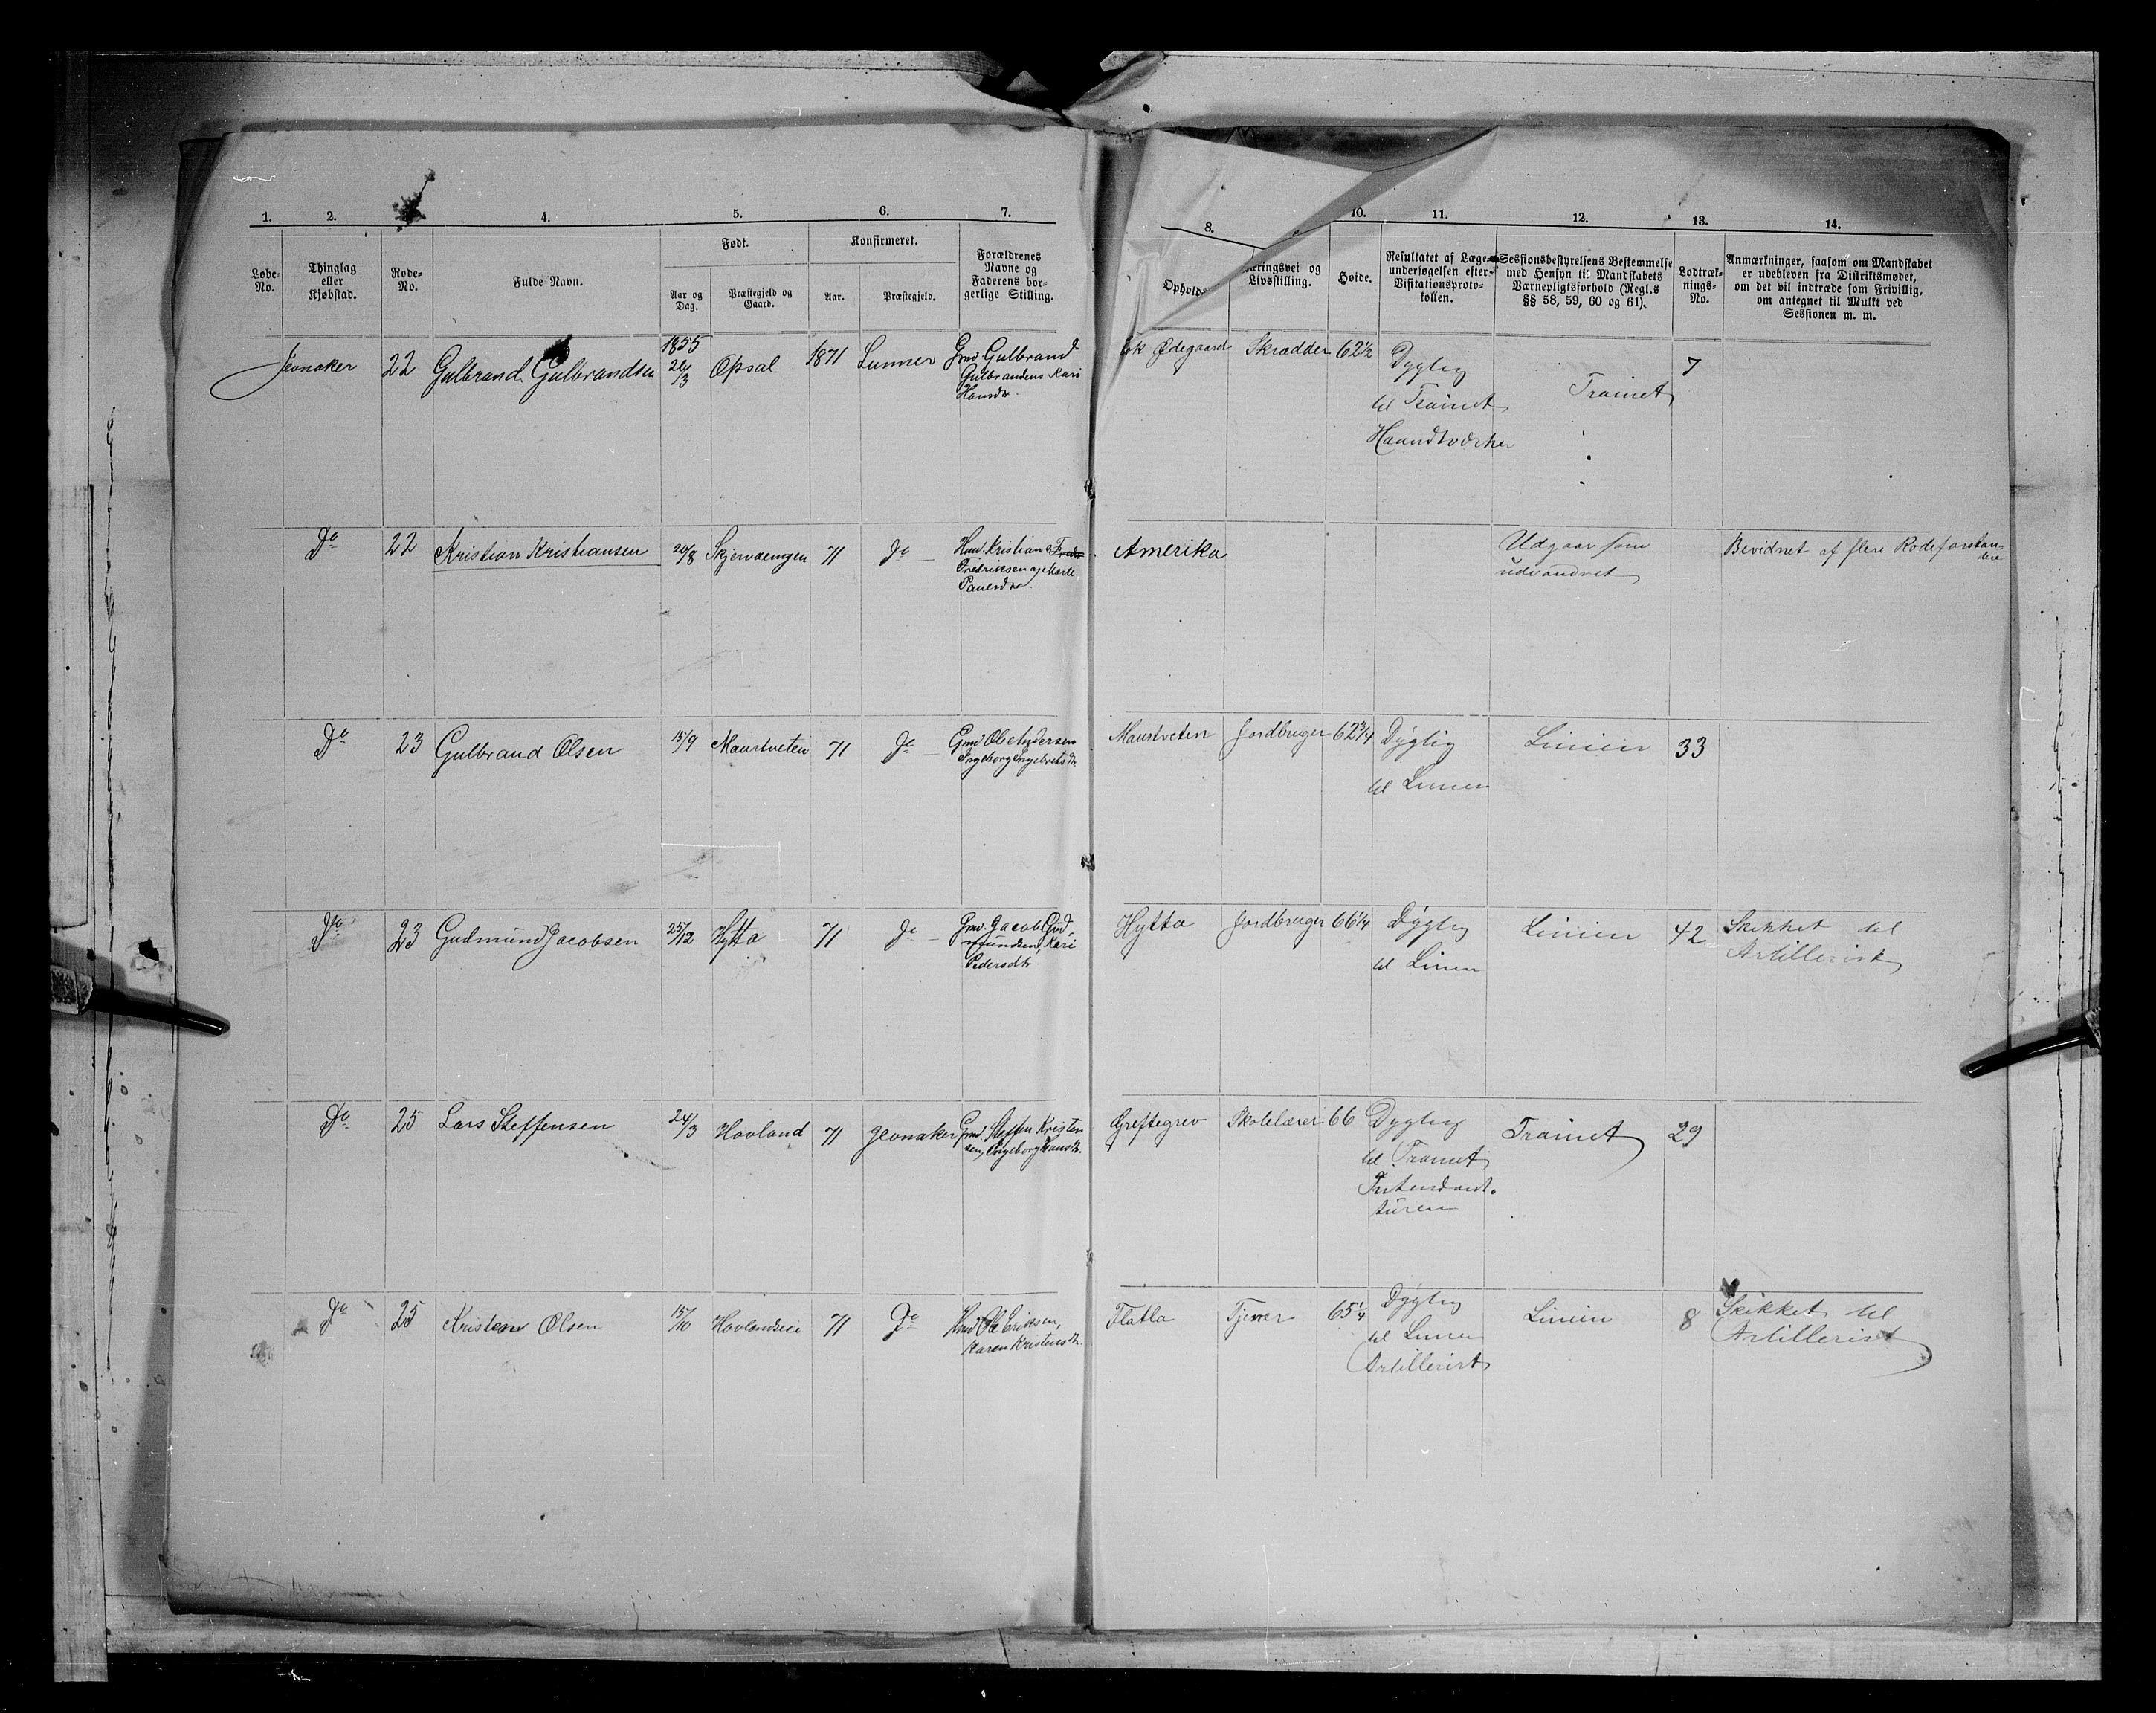 1. 2. 4. 5. 6. 7. 8. 10. 11. 12. 13. 14.
Løbe-
No.
Thinglag
eller
Kjøbstad.
Rode-
No.
Fulde Navn.
Født.
Aar og
Dag.
Præstegjeld og
Gaard.
Konfirmeret.
Aar.
Præstegjeld.
Forældrenes
Navne og
Faderens bor-
gerlige Stilling.
Opholds
æringsvei og
Livsstilling.
Høide.
Resultatet af Læge-
undersøgelsen efter
Visitationsproto-
kollen.
Sessionsbestyrelsens Bestemmelse
med Hensyn til Mandskabets
Værnepligtsforhold (Regl.s
§§ 58, 59, 60 og 61).
Lodtræk-
nings-
No.
Anmærkninger, saasom om Mandskabet
er udebleven fra Distriktsmødet,
om det vil indtræde som Frivillig,
om antegnet til Mulkt ved
Sessionen m. m.
Jevnaker 22 Gulbrand Gulbrandsen 1855 26/3 Opsal 1871 Lunner Gmd Gulbrand
Gulbrandsen Kari
Hansdtr.
Ødegaard Skrædder 62½ Dygtig
til Trainet
Haandtværker
Trainet 7
Do 22 Kristian Kristiansen 20/8 Skjervaengen 71 Do – Hmd. Kristian
Fredriksen og Marte
Paulsdtr.
Amerika
Udgaar som
udvandret
Bevidnet af flere Rodeforstan-
dere
Do 23 Gulbrand Olsen 15/9 Maurtveten 71 Do – Gmd Ole Andersen
Ingeborg Ingebretsdtr
Maurtveten Jordbruger 62¾ Dygtig
til Linien
Linien 33
Do 23 Gudmund Jacobsen 25/12 Hytta 71 Do – Gmd. Jacob Gud-
mundsen, Kari
Pedersdtr.
Hytta Jordbruger 66¼ Dygtig
til Linien
Linien 42 Skikket til
Artillerist
Do 25 Lars Steffensen 24/3 Hovland 71 Jevnaker Gmd. Steffen Kristen
sen, Ingeborg Hansdtr.
Greftegrev Skolelærer 66 Dygtig
til Trainet
Intendant-
turen
Trainet 29
Do 25 Kristen Olsen 15/10 Hovlandseie 71 Do Hmd Ole Eriksen,
Karen Kristensdtr.
Flatla Tjener 65¼ Dygtig
til Linien
Artillerist
Linien 8 Skikket til
Artillerist